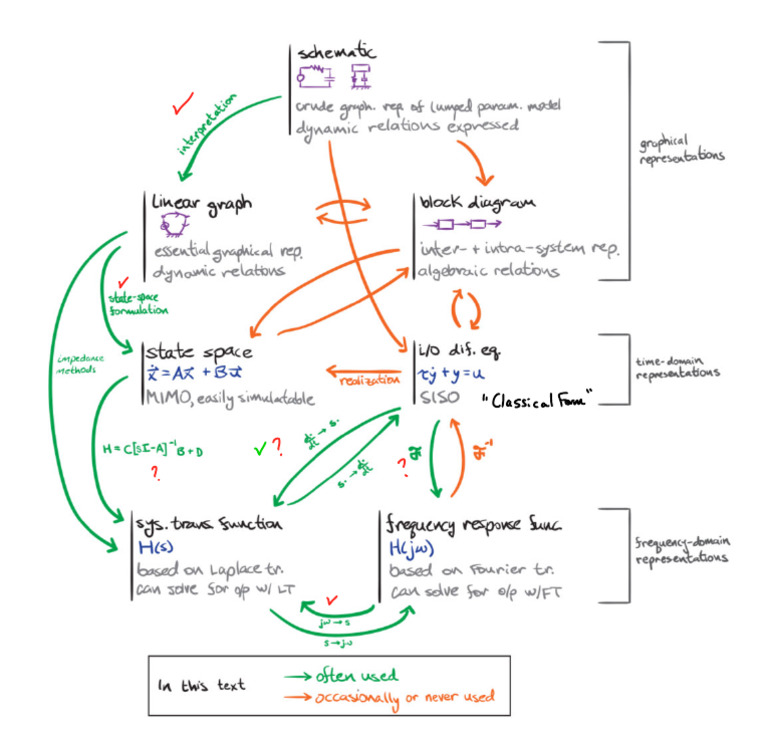 schematic
crude graph. rep of lumped param. model
dynamic relations expressed
graphical
representations
interpretation
linear graph
essential graphical rep.
dynamic relations
block diagram
inter- + intra-system rep.
algebraic relations
state-space
formulation
impedance
methods
state space
ẋ = Ax + Bu
MIMO, easily simulatable
realization
i/o dif. eq.
τẏ + y = u
SISO
"Classical Form"
time-domain
representations
H = C[sI-A]⁻¹B + D
?
?
d·/dt → s·
s· → d·/dt
?
F
F⁻¹
sys. trans. function
H(s)
based on Laplace tr.
can solve for o/p w/ LT
frequency response func.
H(jω)
based on Fourier tr.
can solve for o/p w/FT
frequency-domain
representations
jω → s
s → jω
In this text
→ often used
→ occasionally or never used